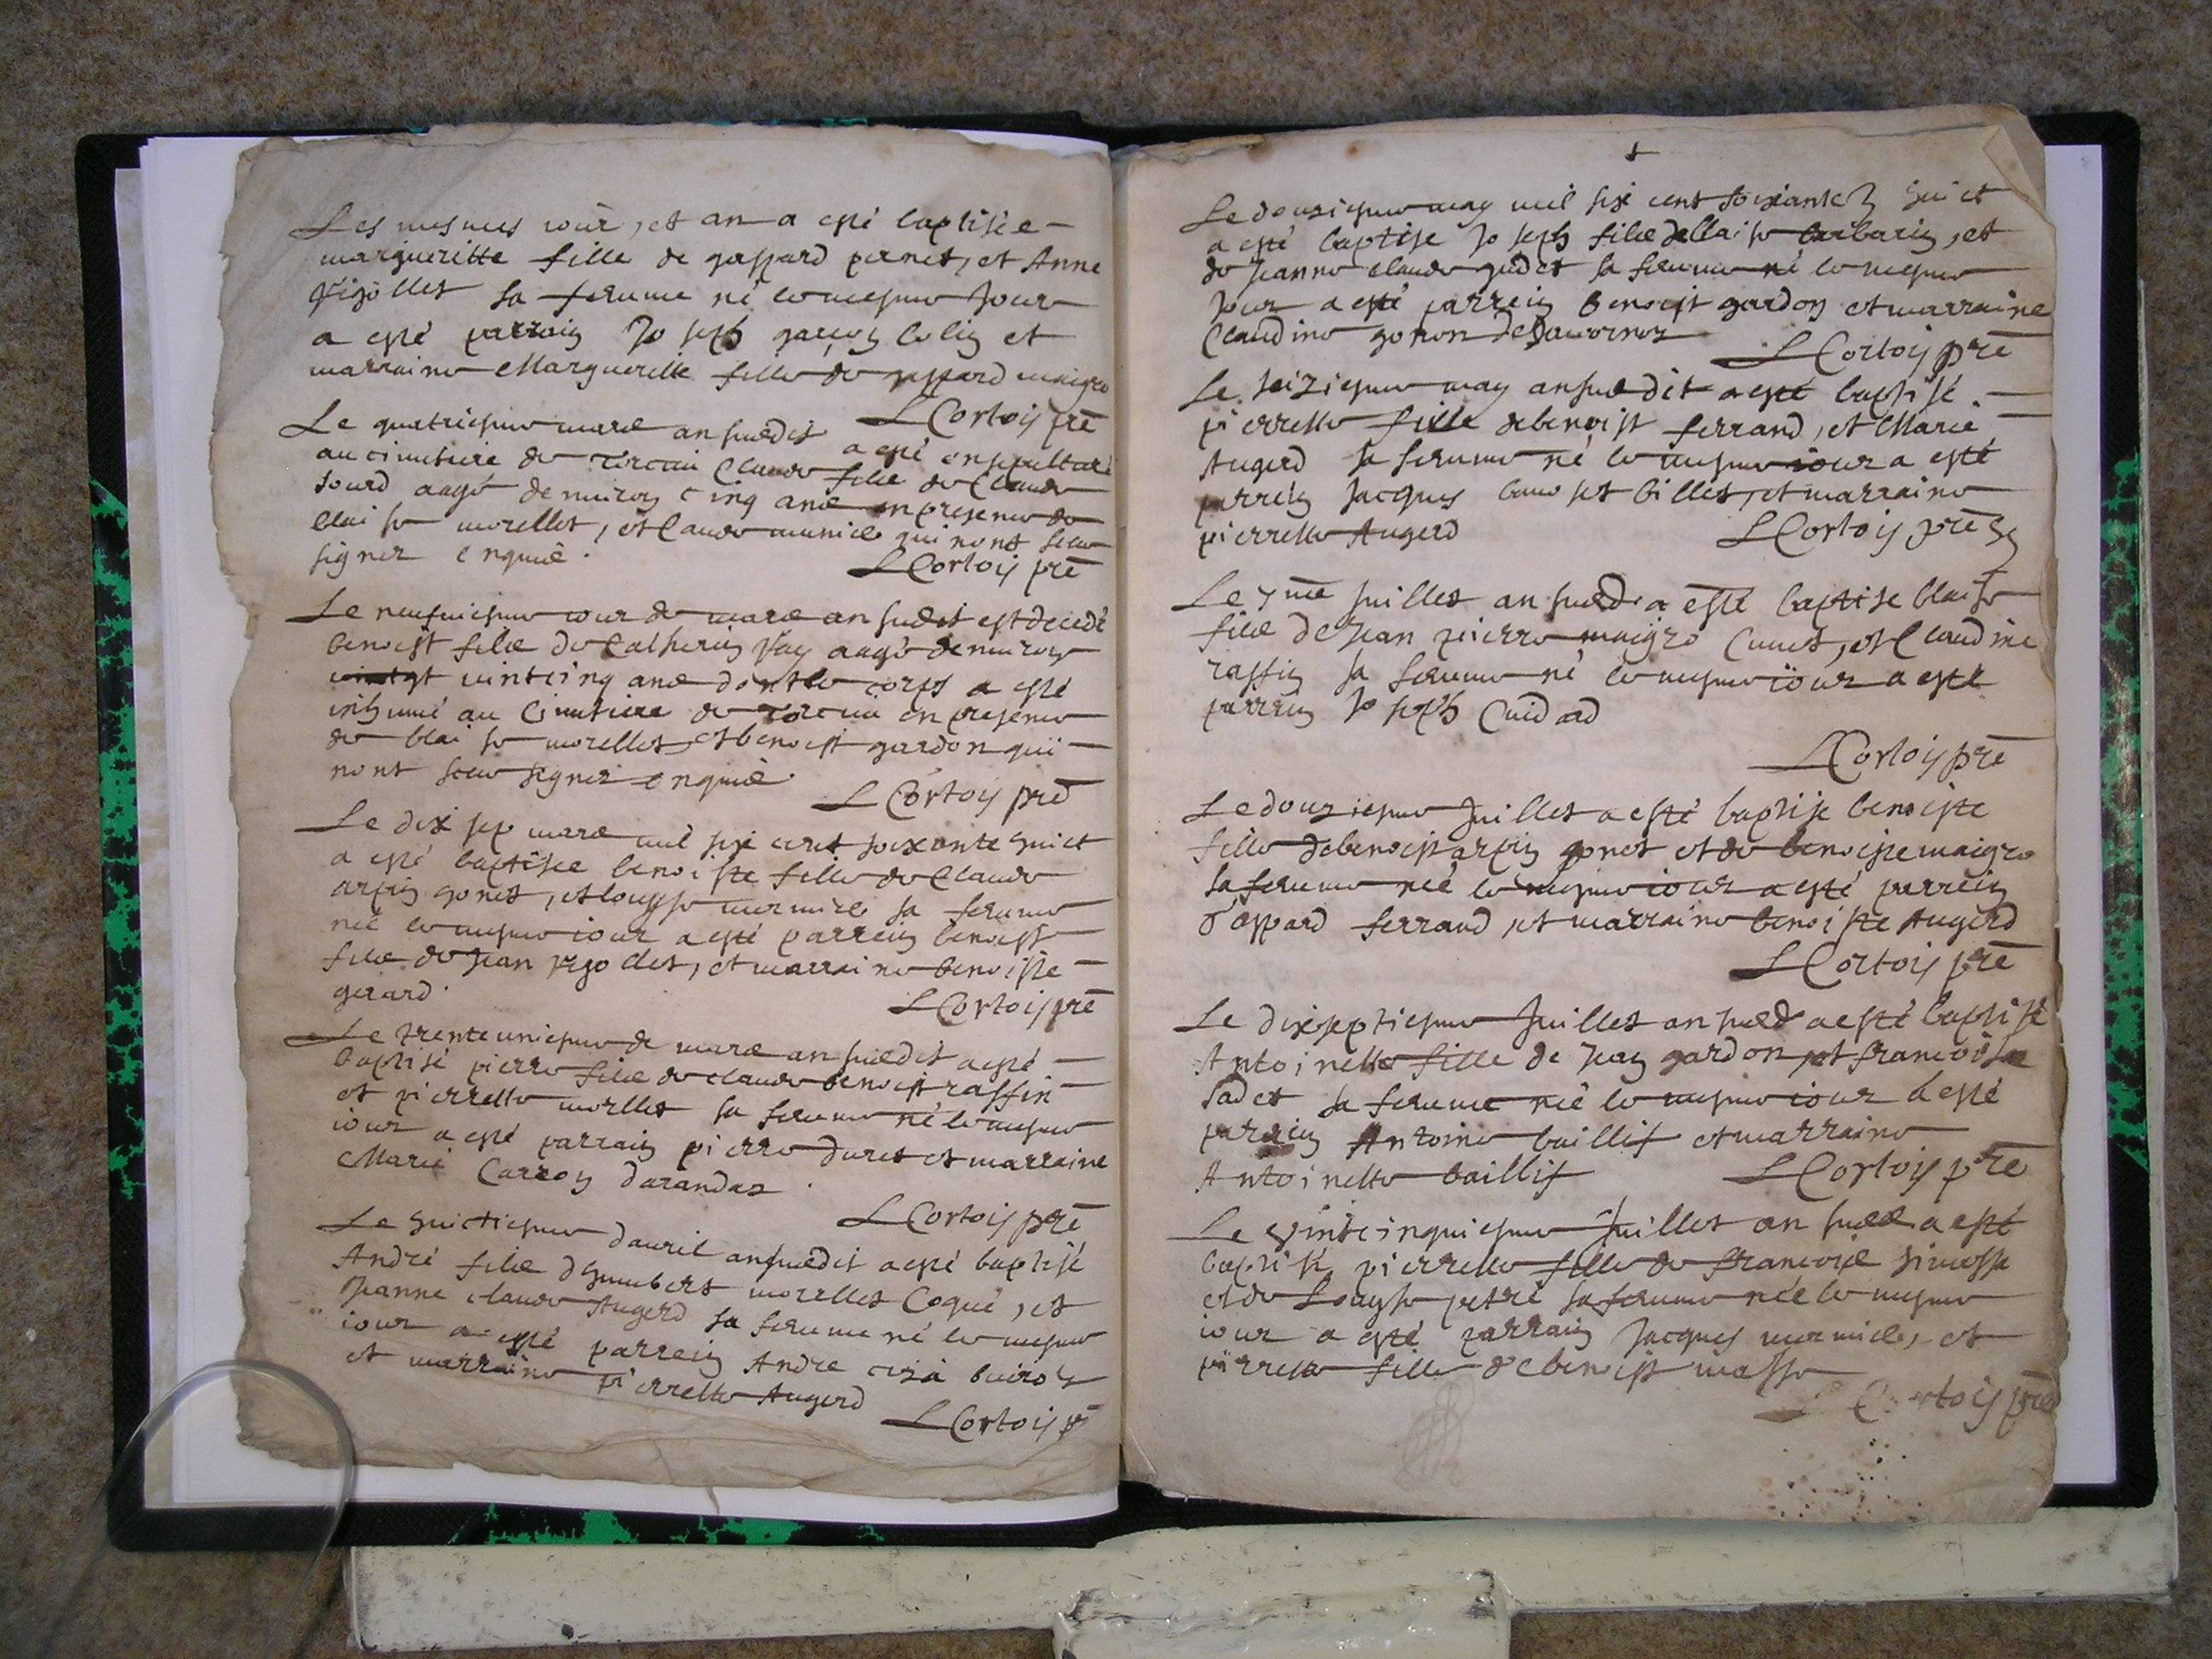 Les mesmes iour, et an a esté baptisée
margueritte fille de gaspard pernet, et Anne
sa femme né le mesme Jour
a esté parrain Joseph garçon colin et
marraine Margueritte fille de gaspard maigre
L Cortois pre
Le quatriesme mars an susdit a esté ensepulturé
au cimetiere de Torcieu Claude filz de Claude
Jourd aagé denuiron cinq ans en presence de
blaise morellet, et Claude mermiel qui nont sceu
signer enquis.
L Cortois pre
Le neufuiesme iour de mars an susdit est decedé
benoist filz de Catherin aagé denuiron
uintcinq ans dont le corps a esté
inhumé au Cimetiere de torcieu en presence
de blaise morellet, et benoist gardon qui
nont sceu signer enquis.
L Cortois pre
Le dix sep mars mil six cent soixante huict
a esté baptisee benoiste fille de Claude
arpin gonet, et louyse mermiel sa femme
née le mesme iour a esté parrein benoist
filz de Jean, et marraine benoiste
gerard.
L Cortois pre
Le trenteuniesme de mars an susdit a esté
baptisé pierre filz de claude benoist raffin
et pierrette morellet sa femme né le mesme
iour a esté parrain pierre duret et marraine
Marie Carron darandas.
L Cortois pre
Le huictiesme dauril an susdit a esté baptisé
André filz dhumbert morellet Coque, et
Jeanne claude Augerd sa femme né le mesme
iour a esté parrein Andre
et marraine pierrette Augerd
L Cortois p
Le douziesme may mil six cent soixante huict
a esté baptise Joseph filz de blaise barbarin, et
de Jeanne claude gudet sa femme né le mesme
Jour a esté parrein benoist gardon et marraine
Claudine gonon
L Cortois pre
Le seiziesme may an susdit a esté baptisé
pierrette fille de benoist ferrand, et Marie
Augerd sa femme né le mesme iour a esté
parrein Jacques billet, et marraine
pierrette Augerd
L Cortois pre
Le 7me Juillet an susd. a esté baptise blaise
filz de Jean pierre maigre Cunet, et Claudine
raffin sa femme né le mesme iour a esté
parrein Joseph Cuidad
L Cortois pre
Le douziesme Juillet a esté baptise benoiste
fille de benoist arpin gonet et de benoiste maigre
sa femme née le mesme iour a esté parrein
gaspard ferrand, et marraine benoiste Augerd
L Cortois pre
Le dixseptiesme Juillet an susd a esté baptisé
Antoinette fille de Jean gardon, et francoise
sadet sa femme née le mesme iour a esté
parrein Antoine baillif et marraine
Antoinette baillif
L Cortois pre
Le vintcinquiesme Juillet an susd a esté
baptisé pierrette fille de francois
et de Louyse petre sa femme née le mesme
iour a esté parrain Jacques mermiel, et
pierrette fille de benoist masse
Cortois pre